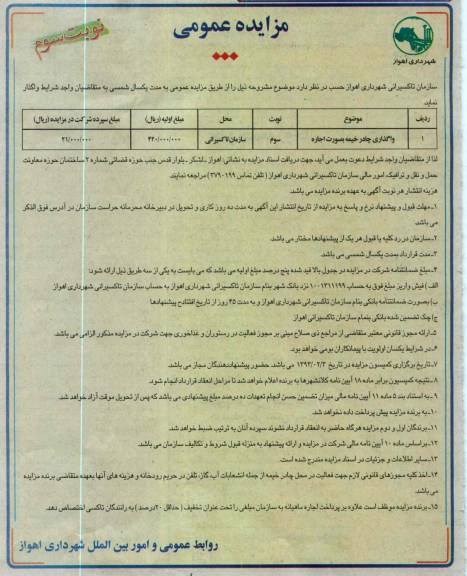 مزایده عمومی
نوبت سوم
شهرداری اهواز
سازمان تاکسیرانی شهرداری اهواز حسب در نظر دارد موضوع مشروحه ذیل را از طریق مزایده عمومی به مدت یکسال شمسی به متقاضیان واجد شرایط واگذار
نماید
ردیف موضوع نوبت محل مبلغ اولیه (ریال) مبلغ سپرده شرکت در مزایده (ریال)
۱ واگذاری چادر خیمه بصورت اجاره سوم سازمان تاکسیرانی ۴۲۰/۰۰۰/۰۰۰ ۲۱/۰۰۰/۰۰۰
لذا از متقاضیان واجد شرایط دعوت بعمل می آید، جهت دریافت اسناد مزایده به نشانی اهواز ـ لشکر ـ بلوار قدس جنب حوزه قضائی شماره ۲ ساختمان حوزه معاونت
حمل و نقل و ترافیک، امور مالی سازمان تاکسیرانی شهرداری اهواز ( تلفن تماس ۳۷۹۰۱۹۹ ) مراجعه نمایند
هزینه انتشار هر نوبت آگهی به عهده برنده مزایده می باشد.
۱ـ مهلت قبول و پیشنهاد نرخ و پاسخ به مزایده از تاریخ انتشار این آگهی به مدت ده روز کاری و تحویل در دبیرخانه محرمانه حراست سازمان در آدرس فوق الذکر
می باشد.
۲ـ سازمان در رد کلیه یا قبول هر یک از پیشنهادها مختار می باشد.
۳ـ مدت قرارداد بمدت یکسال شمسی می باشد.
۴ـ مبلغ ضمانتنامه شرکت در مزایده در جدول بالا قید شده پنج درصد مبلغ اولیه می باشد که می بایست به یکی از سه طریق ذیل ارائه شود:
الف ) فیش واریز مبلغ فوق به حساب ۱۰۰۱۳۱۱۱۹۹ نزد بانک شهر بنام سازمان تاکسیرانی شهرداری اهواز به حساب سازمان تاکسیرانی شهرداری اهواز
ب) بصورت ضمانتنامه بانکی بنام سازمان تاکسیرانی شهرداری اهواز و به مدت ۴۵ روز از تاریخ افتتاح پیشنهادها
ج) چک تضمین شده بانکی بنام سازمان تاکسیرانی اهواز
۵ـ ارائه مجوز قانونی معتبر متقاضی از مراجع ذی صلاح مبنی بر مجوز فعالیت در رستوران و غذاخوری جهت شرکت در مزایده مذکور الزامی می باشد.
۶ـ در شرایط یکسان اولویت با پیمانکاران بومی خواهد بود.
۷ـ تاریخ برگزاری کمیسیون مزایده در تاریخ ۱۳۹۳/۰۲/۳ می باشد. حضور پیشنهاددهندگان مجاز می باشد.
۸ـ نتیجه کمیسیون برابر ماده ۱۸ آیین نامه کلانشهرها به برنده اعلام خواهد شد تا مراحل انعقاد قرارداد انجام شود.
۹ـ به استناد بند ۵ ماده ۱۱ آیین نامه مالی میزان تضمین حسن انجام تعهدات ده درصد مبلغ پیشنهادی می باشد که پس از تحویل موقت آزاد خواهد شد.
۱۰ـ به برنده مزایده پیش پرداخت داده نخواهد شد.
۱۱ـ برندگان اول و دوم مزایده هرگاه حاضر به انعقاد قرارداد نشوند سپرده آنان به ترتیب ضبط خواهد شد.
۱۲ـ براساس ماده ۱۰ آیین نامه مالی شرکت در مزایده و ارائه پیشنهاد به منزله قبول شروط و تکالیف سازمان می باشد.
۱۳ـ سایر اطلاعات و جزئیات در اسناد مزایده مندرج شده است.
۱۴ـ اخذ کلیه مجوزهای قانونی لازم جهت فعالیت در محل چادر خیمه از جمله انشعابات آب، گاز، تلفن در حریم رودخانه و هزینه های آنها بعهده متقاضی برنده مزایده
می باشد.
۱۵ـ برنده مزایده موظف است علاوه بر پرداخت اجاره ماهیانه به سازمان مبلغی را تحت عنوان تخفیف ( حداقل ۲۰درصد ) به رانندگان تاکسی اختصاص دهد.
روابط عمومی و امور بین الملل شهرداری اهواز